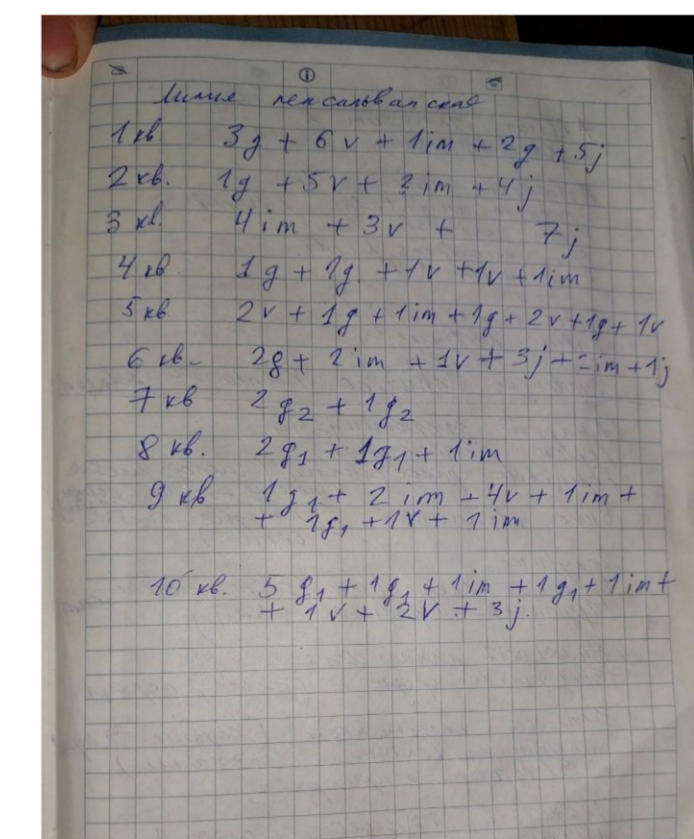 ①
пенсильванская
1 кв. 3g + 6v + 1im + 2g + 5j
2 кв. 1g + 5v + 2im + 4j
3 кв. 4im + 3v + 7j
4 кв. 1g + 1g + 1v + 1v + 1im
5 кв. 2v + 1g + 1im + 1g + 2v + 1g + 1v
6 кв. 2g + 2im + 1v + 3j + 2im + 1j
7 кв 2g2 + 1g2
8 кв. 2g1 + 1g1 + 1im
9 кв 1g1 + 2im + 4v + 1im +
+ 1g1 + 1v + 1im
10 кв. 5g1 + 1g1 + 1im + 1g1 + 1im +
+ 1v + 2v + 3j.